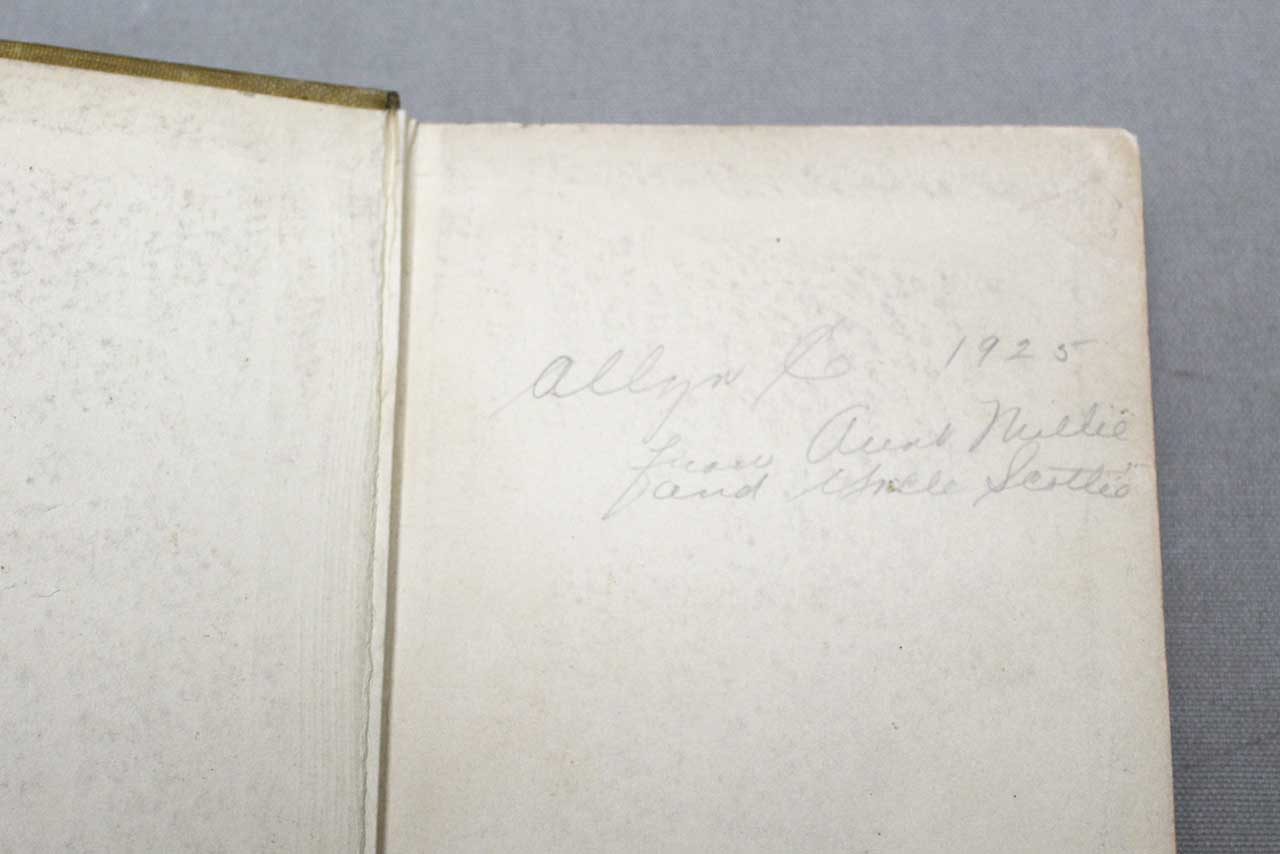 Allyn 1925
from Aunt Millie
and Uncle Scottie